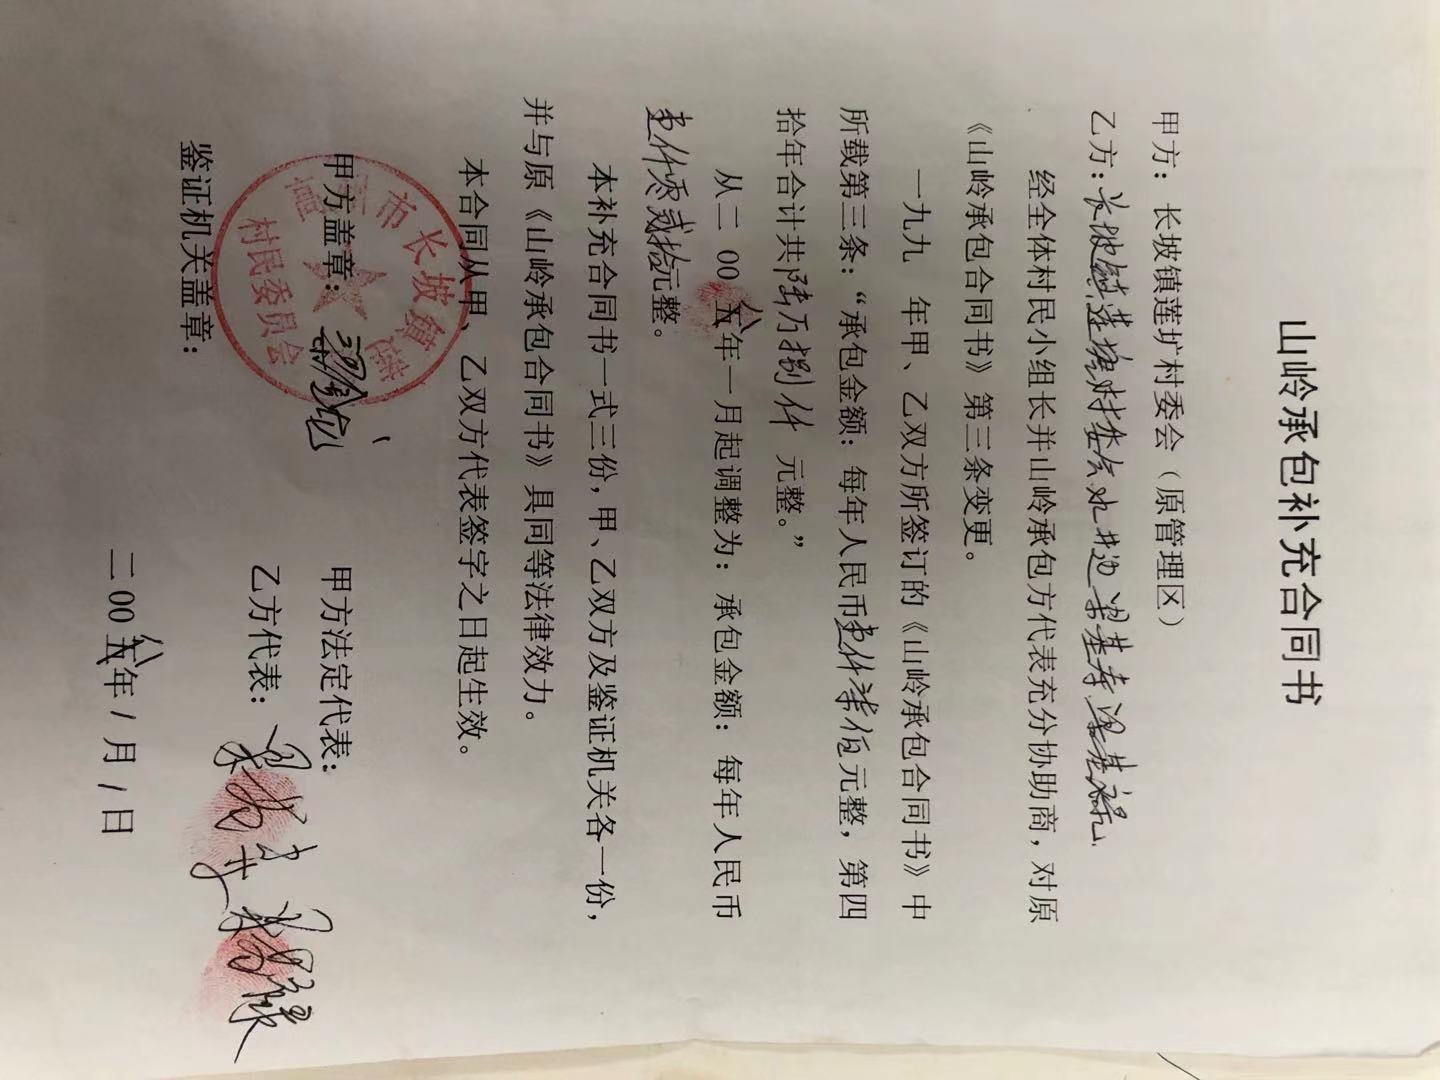 山岭承包补充合同书
甲方：长坡镇莲圹村委会（原管理区）
乙方：长坡镇莲塘村委会水井边梁基寿 梁基祝
经全体村民小组长并山岭承包方代表充分协助商，对原
《山岭承包合同书》第三条变更。
一九九 年甲、乙双方所签订的《山岭承包合同书》中
所载第三条：“承包金额：每年人民币壹仟柒佰元整，第四
拾年合计共陆万捌仟 元整。”
从二00八年一月起调整为：承包金额：每年人民币
壹仟零贰拾元整。
本补充合同书一式三份，甲、乙双方及鉴证机关各一份，
并与原《山岭承包合同书》具同等法律效力。
本合同从甲、乙双方代表签字之日起生效。
甲方盖章：
市长坡镇莲
村民委员会
甲方法定代表：
鉴证机关盖章：
乙方代表：
二00八年1月1日